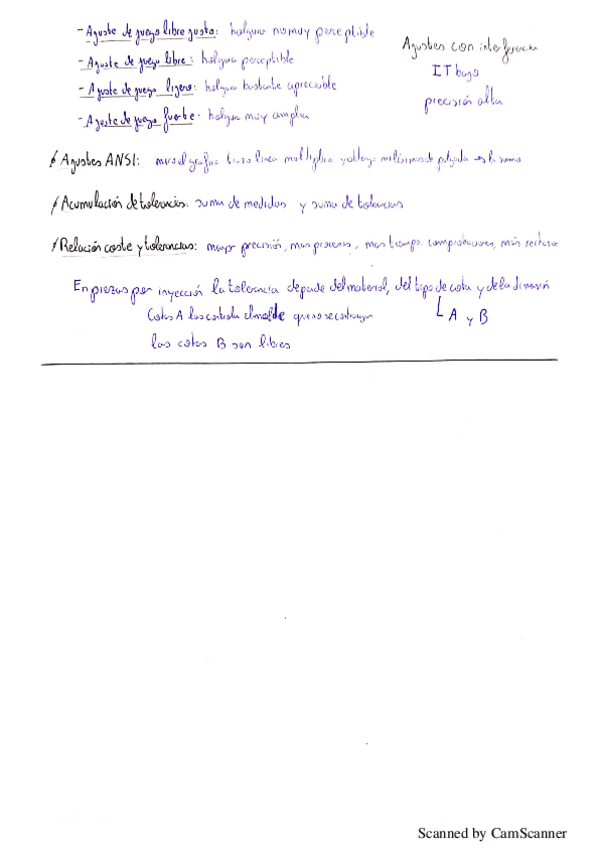 - Ajuste de juego libre justo: holgura no muy perceptible
- Ajuste de juego libre: holgura perceptible
- Ajuste de juego ligero: holgura bastante apreciable
- Ajuste de juego fuerte: holgura muy amplia
Ajustes con interferencia
IT bajo
precisión alta
Ajustes ANSI: miro el grafico trazo linea multiplico y obtengo milésimas de pulgada
Acumulación de tolerancias: suma de medidas y suma de tolerancias
Relación coste y tolerancias: mayor precisión, mas procesos, mas tiempo, comprobaciones, más rechazo
En piezas por inyección la tolerancia depende del material, del tipo de cota y de la dimensión
A y B
Cotas A las controla el molde que no se
las cotas B son libres
Scanned by CamScanner